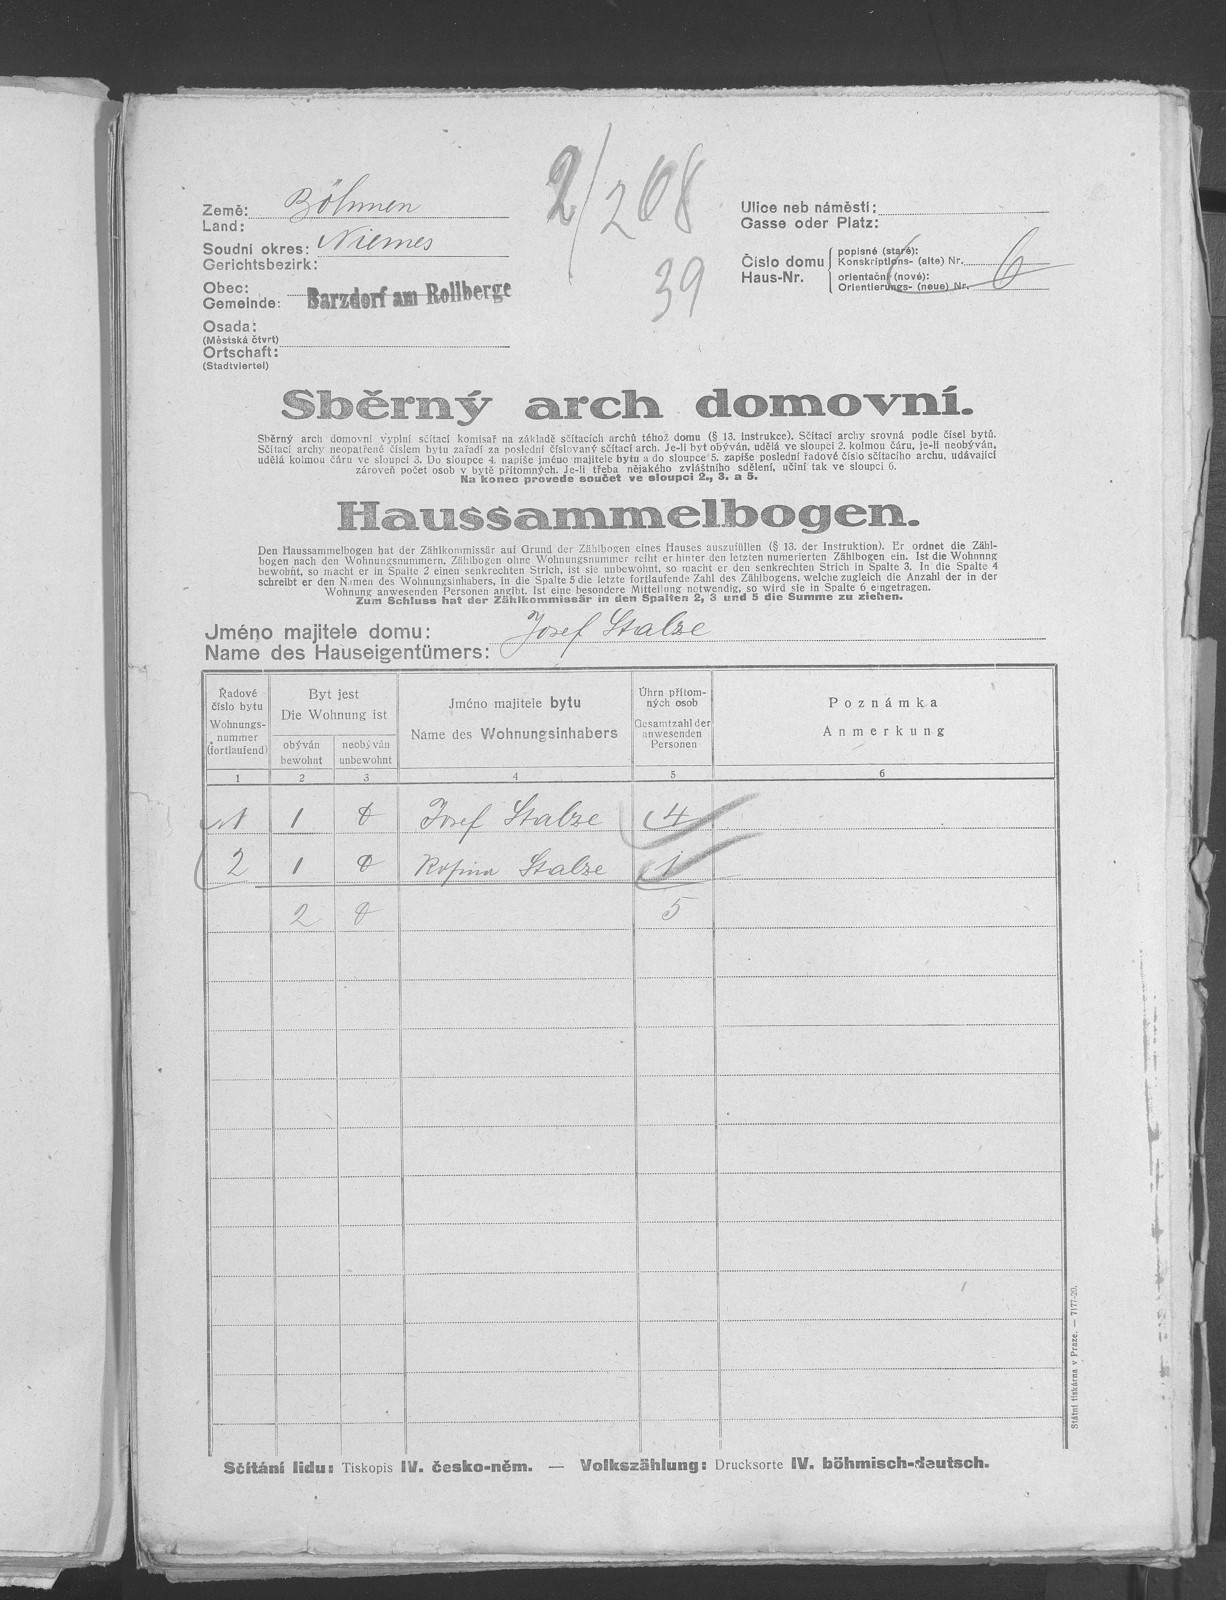 2/208
39
Země: Böhmen
Land:
Soudní okres: Niemes
Gerichtsbezirk:
Obec:
Gemeinde: Barzdorf am Rollberge
Osada:
(Městská čtvrt)
Ortschaft:
(Stadtviertel)
Ulice neb náměstí:
Gasse oder Platz:
Číslo domu
Haus-Nr.
popisné (staré):
Konskriptions- (alte) Nr. 6
orientační (nové):
Orientierungs- (neue) Nr.
Sběrný arch domovní.
Sběrný arch domovní vyplní sčítací komisař na základě sčítacích archů téhož domu (§ 13. instrukce). Sčítací archy srovná podle čísel bytů.
Sčítací archy neopatřené číslem bytu zařadí za poslední číslovaný sčítací arch. Je-li byt obýván, udělá ve sloupci 2. kolmou čáru, je-li neobýván,
udělá kolmou čáru ve sloupci 3. Do sloupce 4. napíše jméno majitele bytu a do sloupce 5. zapíše poslední řadové číslo sčítacího archu, udávající
zároveň počet osob v bytě přítomných. Je-li třeba nějakého zvláštního sdělení, učiní tak ve sloupci 6.
Na konec provede součet ve sloupci 2., 3. a 5.
Haussammelbogen.
Den Haussammelbogen hat der Zählkommissär auf Grund der Zählbogen eines Hauses auszufüllen (§ 13. der Instruktion). Er ordnet die Zähl-
bogen nach den Wohnungsnummern. Zählbogen ohne Wohnungsnummer reiht er hinter den letzten numerierten Zählbogen ein. Ist die Wohnung
bewohnt, so macht er in Spalte 2 einen senkrechten Strich, ist sie unbewohnt, so macht er den senkrechten Strich in Spalte 3. In die Spalte 4
schreibt er den Namen des Wohnungsinhabers, in die Spalte 5 die letzte fortlaufende Zahl des Zählbogens, welche zugleich die Anzahl der in der
Wohnung anwesenden Personen angibt. Ist eine besondere Mitteilung notwendig, so wird sie in Spalte 6 eingetragen.
Zum Schluss hat der Zählkommissär in den Spalten 2, 3 und 5 die Summe zu ziehen.
Jméno majitele domu: Josef Stalze
Name des Hauseigentümers:
Řadové číslo bytu
Wohnungs-nummer (fortlaufend)
Byt jest
Die Wohnung ist
obýván
bewohnt
neobýván
unbewohnt
Jméno majitele bytu
Name des Wohnungsinhabers
Úhrn přítom-ných osob
Gesamtzahl der anwesenden Personen
Poznámka
Anmerkung
1 2 3 4 5 6
1 1 0 Josef Stalze 4
2 1 0 Rosina Stalze 1
2 0 5
Sčítání lidu: Tiskopis IV. česko-něm. — Volkszählung: Drucksorte IV. böhmisch-deutsch.
Státní tiskárna v Praze. — 7177-20.